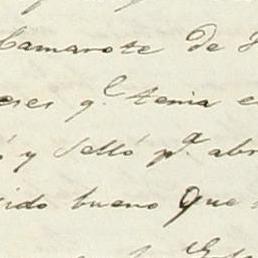 Camarote de
eres q.l tenia e
ó y selló p.a abr
ido bueno que